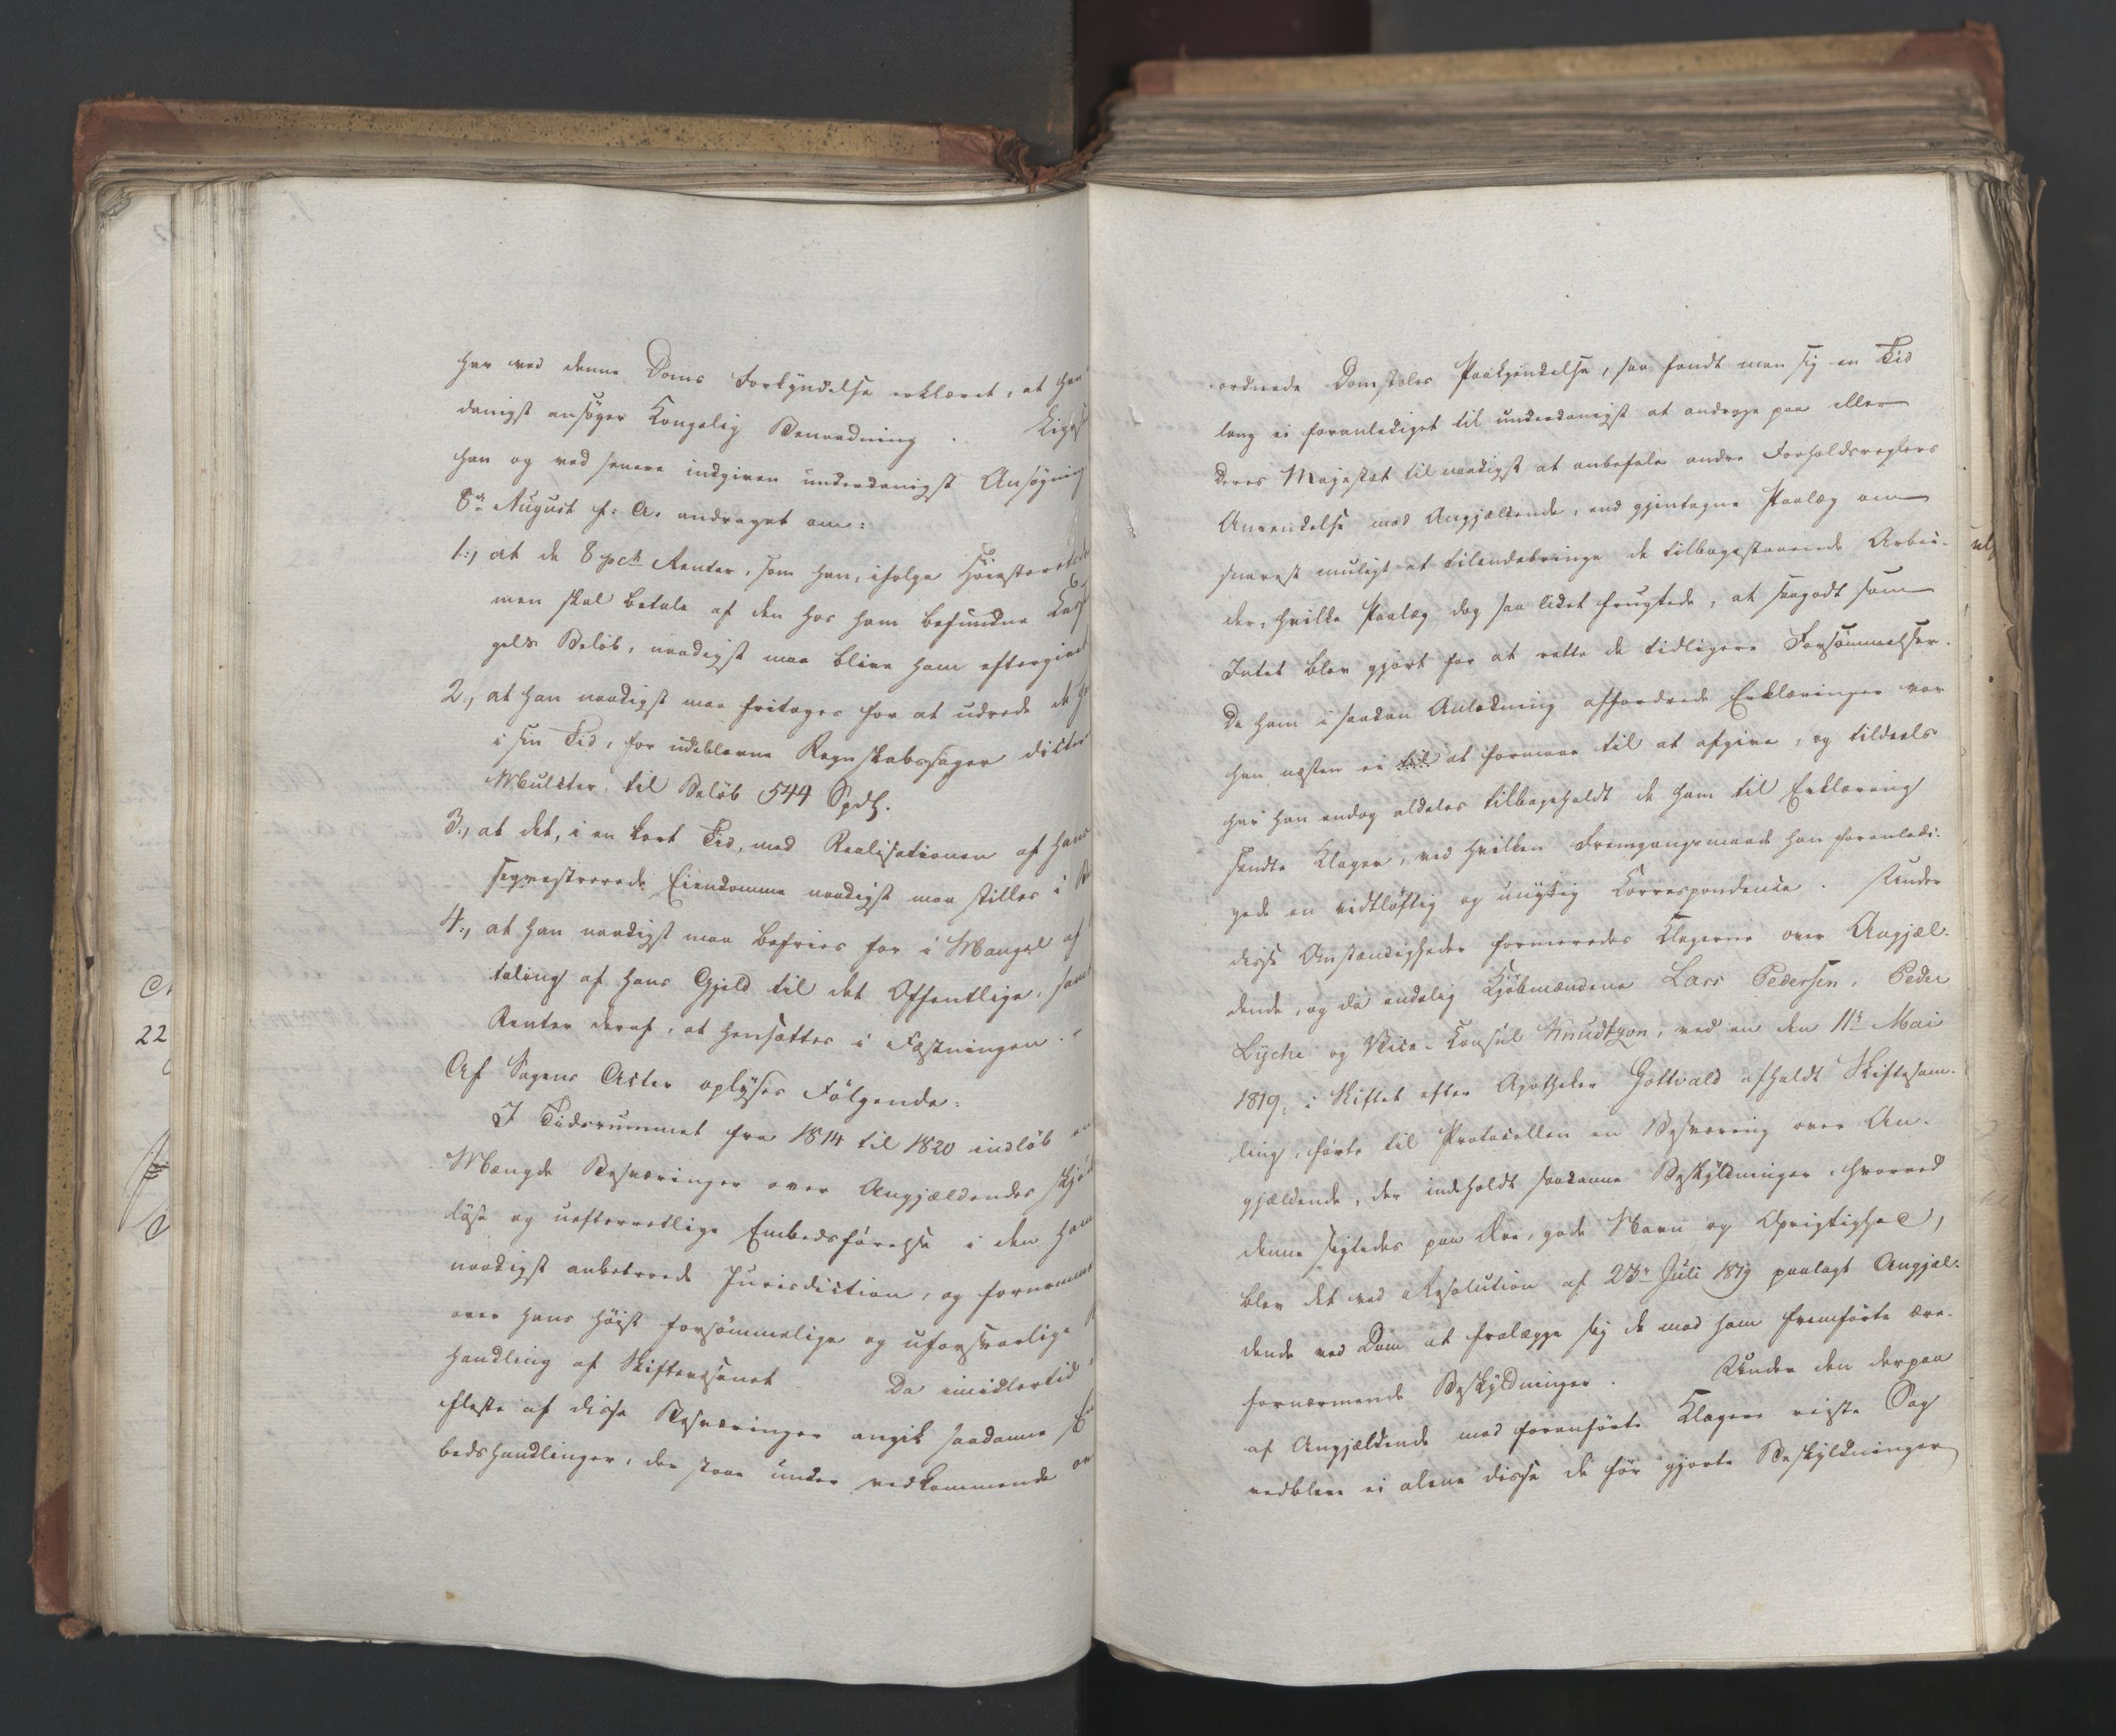 har ved denne Doms Forkyndelse erklæret, at han
danigst ansøger Kongelig Benaadning. Ligesom
han og ved senere indgiven underdanigst Ansøgning
8de August f: A: andraget om:
1:, at de 8 pCt Renter, som han, ifølge Høiesterets
men skal betale af den hos ham befundne Cassa
gels Beløb, naadigst maa blive ham eftergivet
2:, at han naadigst maa fritages for at udrede de
i sin Tid, for udeblevne Regnskabssager dicter
Mulcter, til Beløb 544 Spdl.
3:, at det, i en kort Tid, med Realisationen af hans
seqvestrerede Eiendomme naadigst maa stilles i
4:, at han naadigst maa befries for i Mangel af
taling af hans Gjeld til det Offentlige, samt
Renter deraf, at hensættes i Fæstningen. -
Af Sagens Acter oplyses Følgende:
I Tidsrummet fra 1814 til 1820 indløb en
Mængde Besværinger over Angjældendes skjøds
løse og uefterrettlige Embedsførelse i den ham
naadigst anbetroede Jurisdiction, og fornemmelig
over hans høist forsømmelige og uforsvarlige
Handling af Skiftevæsenet Da imidlertid
fleste af disse Besværinger angik saadanne Em
bedshandlinger, der staae under vedkommende or
Ch
22
ordnede Domstoles Paakjendelse, saa fandt man sig en Tid
lang ei foranlediget til underdanigst at andrage paa eller
Deres Majestæt til naadigst at anbefale andre Forholdsreglers
Anvendelse mod Angjældende, end gjentagne Paalæg om
snarest muligt at tilendebringe de tilbagestaaende Arbei-
der, hvilke Paalæg dog saa lidet frugtede, at saagodt som
Intet blev gjort for at rette de tidligere Forsømmelser.
De ham i saadan Anledning affordrede Erklæringer var
han næsten ei til at formaae til at afgive, og tildeels
har han endog aldeles tilbageholdt de ham til Erklæring
sendte Klager, ved hvilken Fremgangsmaade han foranledi-
gede en vidtløftig og unyttig Correspondence. Under
disse Omstændigheder formeredes Klagerne over Angjæl-
dende, og da endelig Kjøbmændene Lars Pedersen, Peder
Lyche og Vice-Consul Knudtzon, ved en den 11te Mai
1819, i Skiftet efter Apotheker Gottvald afholdt Skiftesam-
ling, førte til Protocollen en Besværing over An-
gjældende, der indeholdt saadanne Beskyldninger, hvorved
denne sigtedes paa Ære, gode Navn og Oprigtighed,
blev det ved Resolution af 23de Juli 1819 paalagt Angjæl-
dende ved Dom at fralægge sig de mod ham fremførte ære-
fornærmende Beskyldninger. Under den derpaa
af Angjældende mod foranførte Klagere reiste Sag
vedbleve ei alene disse de før gjorte Beskyldninger